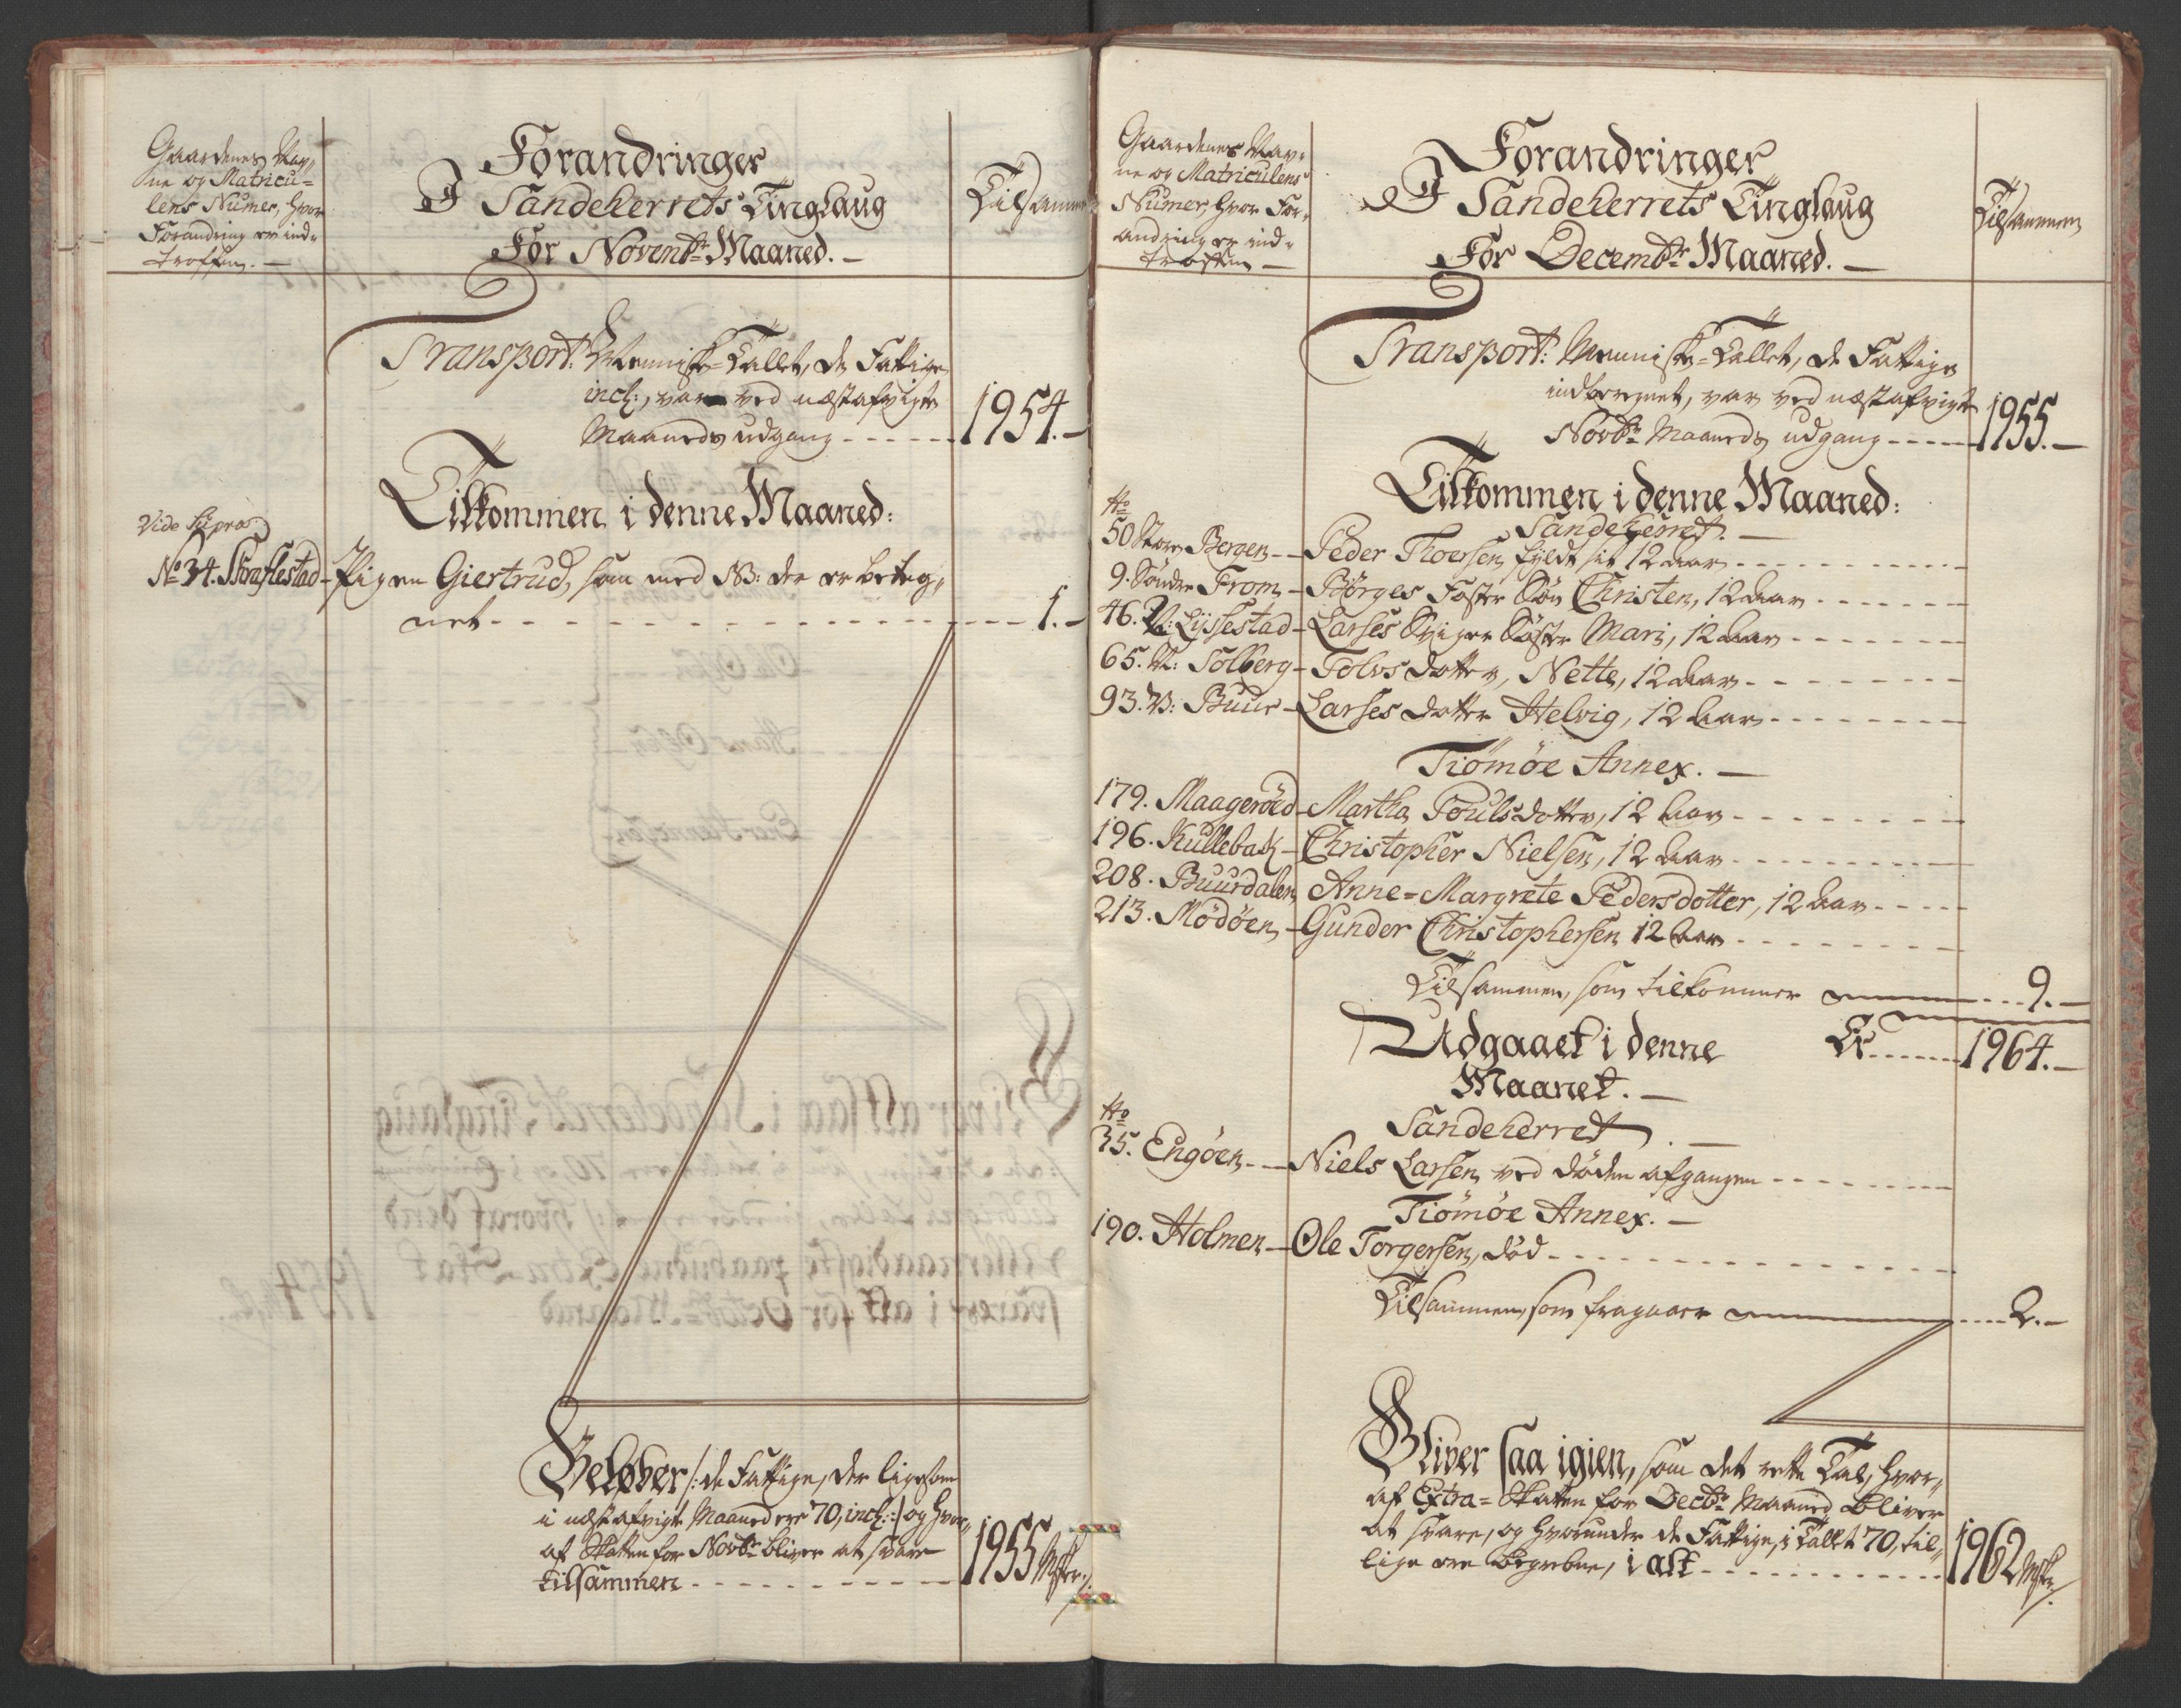 Gaardenes Nav„
ne og Matricu=
lens Numer, hvor
Forandring er ind„
troffen. —
Forandringer
I Sandeherrets Tinglaug
For Novembr: Maaned. —
Tilsammen
Transport: Menniske=Tallet, de Fattige
incl:, var ved næstafvigte
Maaneds udgang - - - - - - 1954. —
Tilkommen i denne Maaned:
Vide Supra
No 34. Skraflestad - Pigen Giertrud, som med NB: der er beteg„
net - - - - - - - - - - 1. -
Beløber /: de Fattige, der ligesom
i næstafvigte Maaned ere 70, incl: :/ og hvor„
af Skatten for Novbr: bliver at svare
tilsammen - - - - - - - - - - 1955 Msker.
Gaardenes Nav„
ne og Matriculens
Numer, hvor For„
andring er ind„
troffen —
Forandringer
I Sandeherrets Tinglaug
For Decembr: Maaned. —
Tilsammen
Transport: Menniske=Tallet, de Fattige
indberegnet, var ved næstafvigte
Novbr: Maaneds udgang - - - - - 1955. —
Tilkommen i denne Maaned:
Sandeherret. —
No
50 Store Bergen - - Peder Thoersen fyldt sit 12 Aar - - - - - - - - - -
9. Søndre From - Börges Foster Søn Christen, 12 Aar - - - - - - -
46. N: Lijsestad - Larses Sviger Søster Mari, 12 Aar - - - - - - - -
65. N: Solberg - Tolvs Dotter, Nette, 12 Aar - - - - - - - - -
93. N: Buur - Larses Dotter Helvig, 12 Aar - - - - - - - -
Tiömöe Annex. —
179. Maageröed - Martha Poulsdotter, 12 Aar - - - - - - - - -
196. Kullebak - Christopher Nielsen, 12 Aar - - - - - - - - - -
208. Buurdalen Anne=Margrete Pedersdotter, 12 Aar - - - - -
213. Mödöen - Gunder Christophersen 12 Aar - - - - - - - - -
Tilsammen, som tilkommer - - - 9. —
Er - - - - - - 1964. —
Udgaaet i denne
Maanet. —
Sandeherret. —
No
35. Engöen - - Niels Larsen ved Døden afgangen - - - - - - - -
Tiömöe Annex. —
190. Holmen - Ole Torgersen, död - - - - - - - - - - - - - -
Tilsammen, som fragaaer - - - - - 2. —
Bliver saa igien, som det rette Tal, hvor„
af Extra=Skatten for Decbr: Maaned bliver
at svare, og hvorunder de Fattige, i Tallet 70, til„
lige ere begrebne, i alt - - - - - - - - - - - - 1962 Msker.